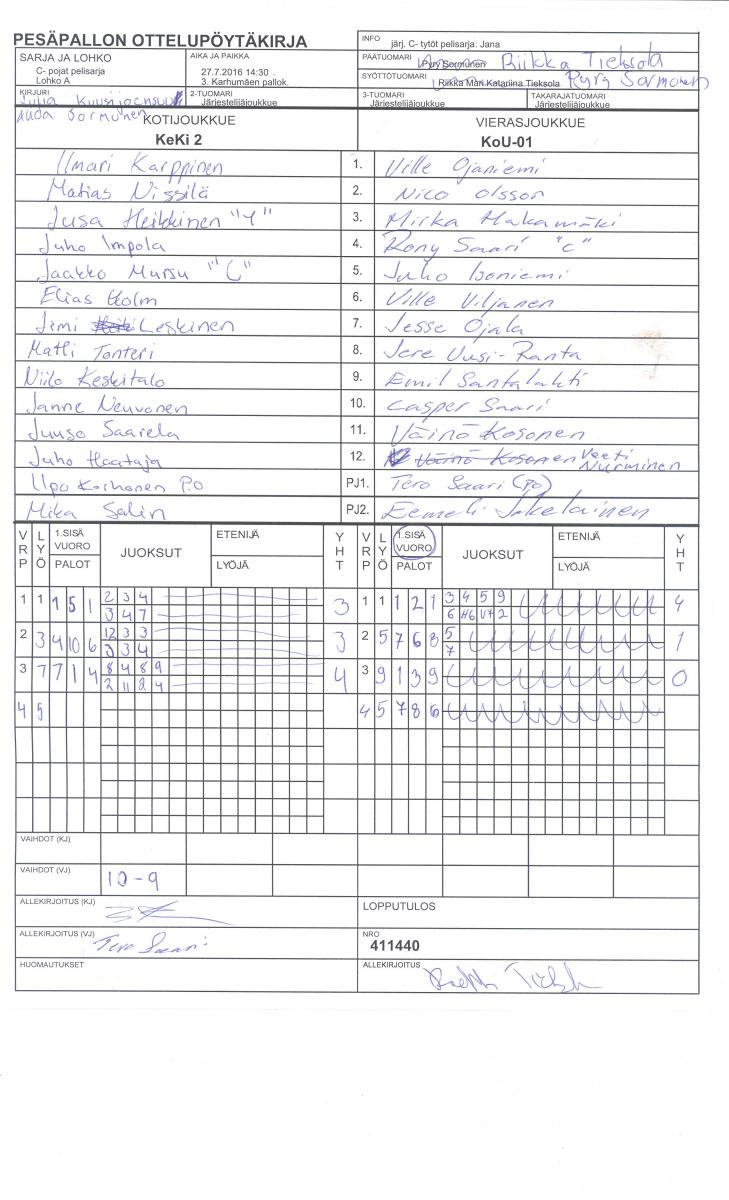 PESÄPALLON OTTELUPÖYTÄKIRJA
INFO järj. C- tytöt pelisarja: Jana
SARJA JA LOHKO
C- pojat pelisarja
Lohko A
AIKA JA PAIKKA
27.7.2016 14:30
3. Karhumäen pallok.
PÄÄTUOMARI Pyry Sormunen Riikka Tieksola
SYÖTTÖTUOMARI Riikka Mari Katariina Tieksola Pyry Sormunen
KIRJURI
Julia
Sormunen
2-TUOMARI
Järjestelijäjoukkue
3-TUOMARI
Järjestelijäjoukkue
TAKARAJATUOMARI
Järjestelijäjoukkue
KOTIJOUKKUE VIERASJOUKKUE
KeKi 2 KoU-01
Ilmari Karppinen 1. Ville Ojaniemi
Matias Nissilä 2. Nico Olsson
Jusa Heikkinen "Y" 3. Mirka Hakamäki
Juho Impola 4. Rony Saari "C"
Jaakko Mursu "C" 5. Juho Isoniemi
Elias Holm 6. Ville Viljanen
Jimi Leskinen 7. Jesse Ojala
Matti Tonteri 8. Jere Uusi-Ranta
Niilo Keskitalo 9. Emil Santalahti
Janne Neuvonen 10. Casper Saari
Juuso Saarela 11. Väinö Kosonen
Juho Haataja 12. Väinö Kosonen Veeti Nurminen
Ilpo Korhonen P.O PJ1. Tero Saari (PO)
Mika Salin PJ2. Eemeli Jokelainen
VRP LYÖ 1.SISÄ VUORO PALOT JUOKSUT ETENIJÄ LYÖJÄ YHT VRP LYÖ 1.SISÄ VUORO PALOT JUOKSUT ETENIJÄ LYÖJÄ YHT
1 1 1 5 1 2 3 4 3 1 1 1 2 1 3 4 5 9 4
3 4 7 6 H6 V7 2
2 3 4 10 6 12 3 3 3 2 5 7 6 8 5 1
3 3 4 7
3 7 7 1 4 8 4 8 9 4 3 9 1 3 9 0
2 11 2 4
4 5 4 5 7 8 6
VAIHDOT (KJ)
VAIHDOT (VJ) 10-9
ALLEKIRJOITUS (KJ) LOPPUTULOS
ALLEKIRJOITUS (VJ) Tero Saari NRO
411440
HUOMAUTUKSET ALLEKIRJOITUS